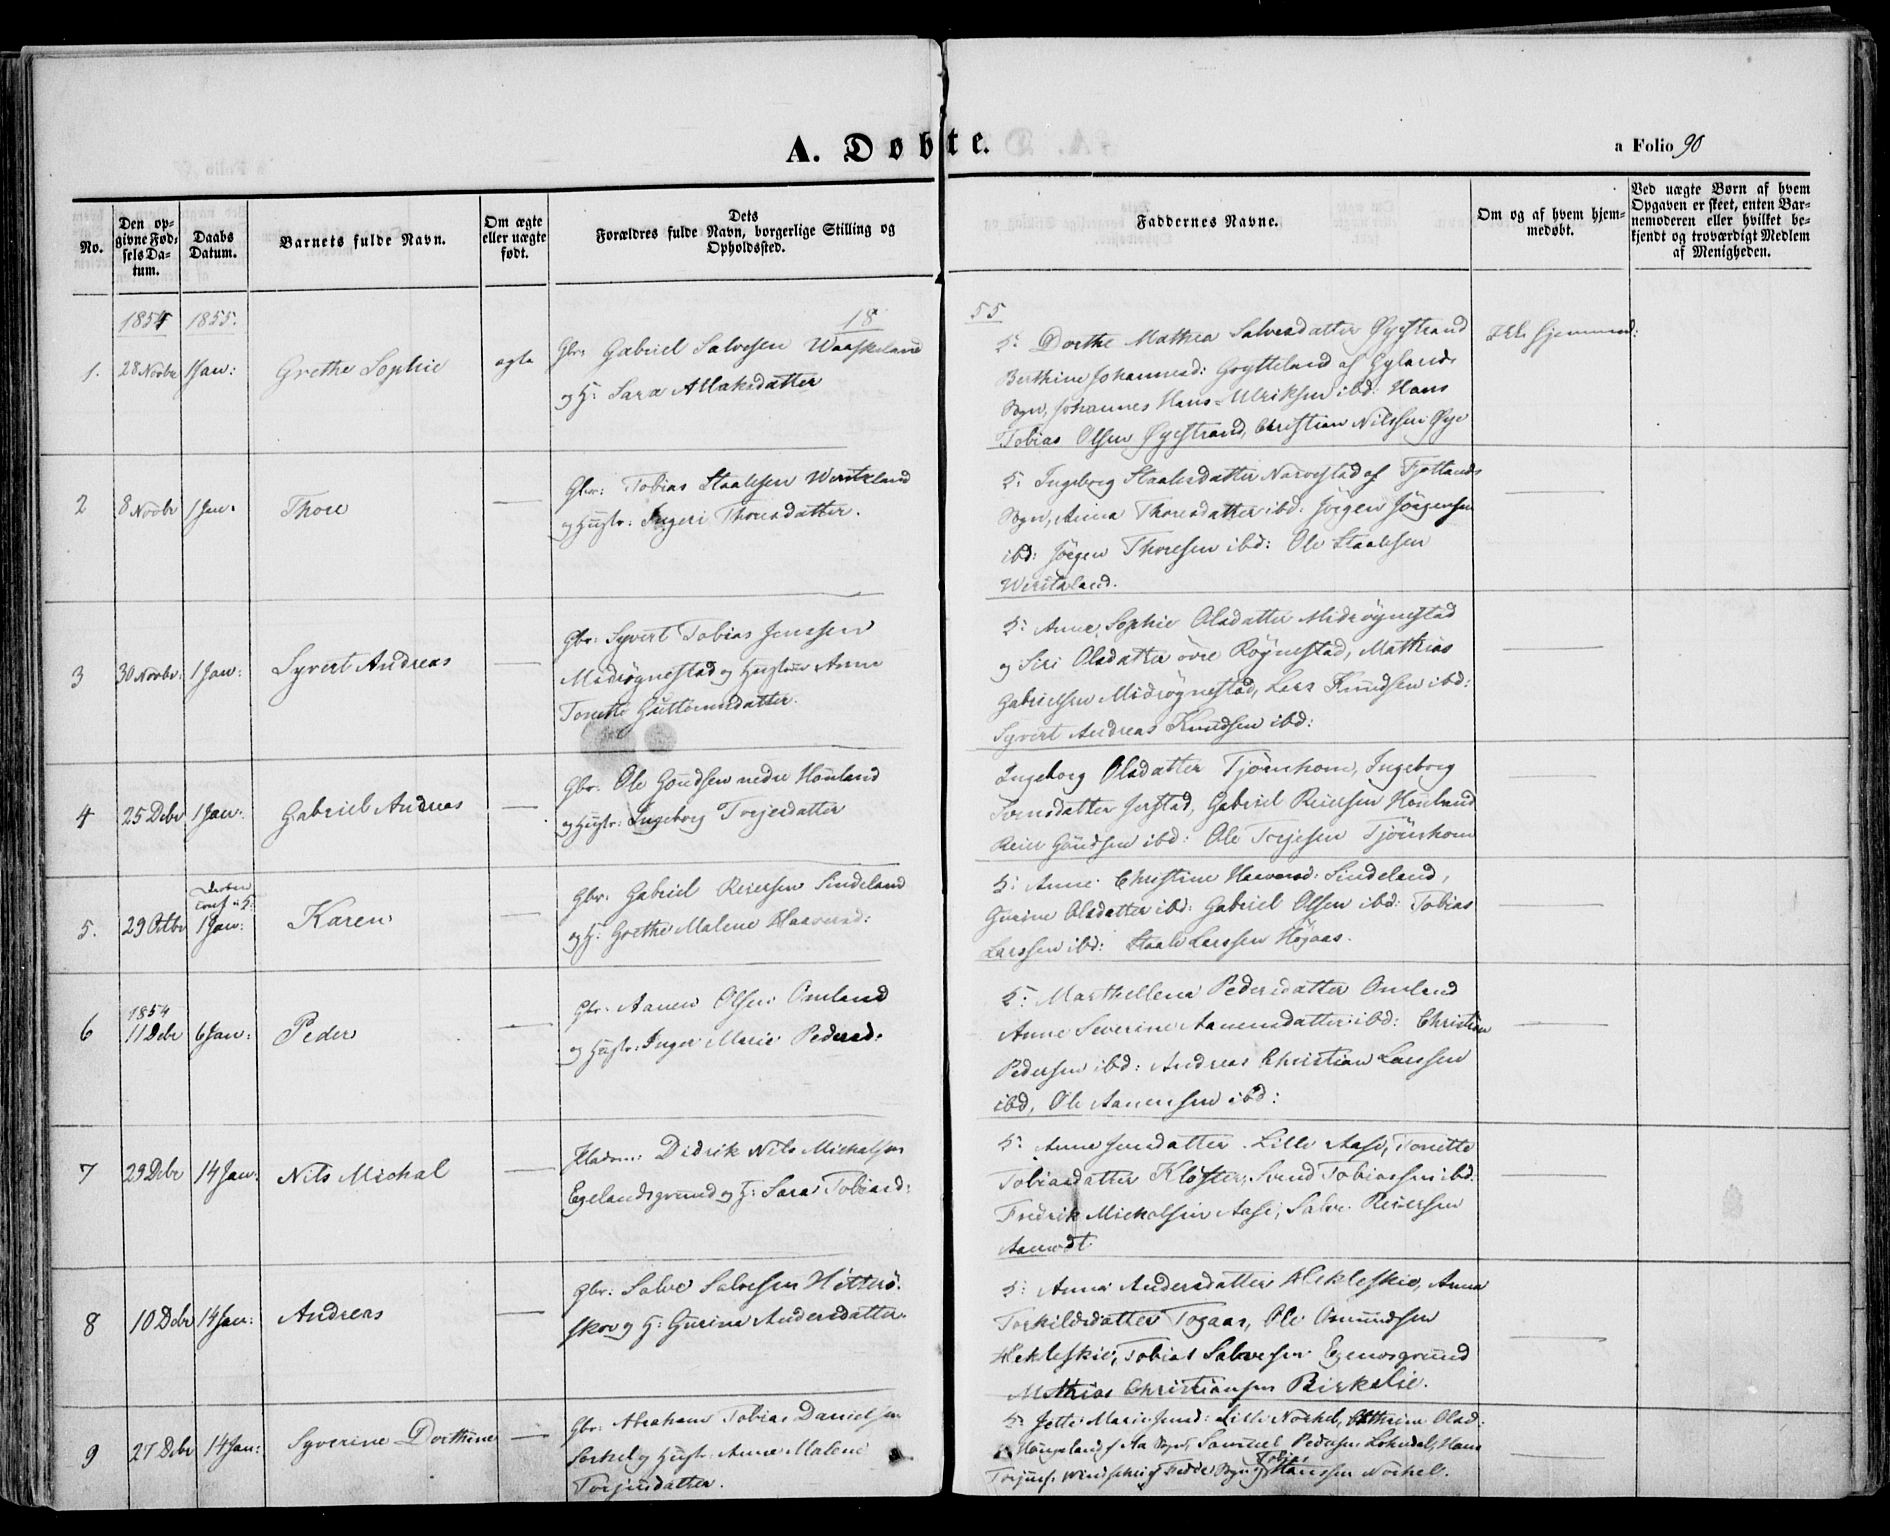 A. Døbte.
a Folio 90
No.
Den op-
givne Fød-
sels Da-
tum.
Daabs
Datum.
Barnets fulde Navn.
Om ægte
eller uægte
født.
Dets
Forældres fulde Navn, borgerlige Stilling og
Opholdssted.
Faddernes Navne.
Om og af hvem hjem-
medøbt.
Ved uægte Børn af hvem
Opgaven er skeet, enten Bar-
nemoderen eller hvilket be-
kjendt og troværdigt Medlem
af Menigheden.
1854 1855.
18 55
1. 28 Novbr 1 Jan: Grethe Sophie ægte
Gbr: Gabriel Salvesen Waaskeland
og H: Sara Atlaksdatter
5: Dorthe Mathea Salvesdatter Øyestrand
Berthine Johannesd: Grytteland af Eylands
Sogn, Johannes Hans-Ulriksen ibd: Hans
Tobias Olsen Øyestrand, Christian Nilssen Øye
2 8 Novbr 1 Jan: Thore —
Gbr: Tobias Staalesen
og Hustr: Ingeri Thoresdatter.
5: Ingeborg Staalesdatter Narvestad af Fjotlands
Sogn, Anna Thoresdatter ibd: Jörgen Jörgensen
ibd: Jörgen Thoresen ibd: Ole Staalesen
3 30 Novbr: 1 Jan: Syvert Andreas —
Gbr: Syvert Tobias Jenssen
Midrøgnestad og Hustrue Anne
Tonette Guttormsdatter.
5: Anne Sophie Olsdatter Midrøgnestad
og Siri Olsdatter övre Røgnestad, Mathias
Gabrielsen Midrøgnestad, Lars Knudsen ibd:
Syvert Andreas Knudsen ibd:
4 25 Debr 1 Jan: Gabriel Andreas —
Gbr: Ole Gundsen nedre Houland
og Hustr: Ingeborg Torjesdatter
Ingeborg Olsdatter Tjörnhom, Ingeborg
Svensdatter Jerstad, Gabriel Reiersen Houland
Reier Gundsen ibd: Ole Torjesen Tjörnhom
5. 29 Octbr 1 Jan: Karen —
Gbr: Gabriel Reiersen Sindeland
og H: Grethe Malene Haaversd:
5: Anne Christine Haaversd: Sindeland,
Gurine Olsdatter ibd: Gabriel Olsen ibd: Tobias
Larssen ibd: Staale Larssen Høgaas.
1854
6 11 Debr 6 Jan: Peder —
Gbr: Aanen Olsen Omland
og Hustr: Inger Marie Pedersd:
5: Marthellena Pedersdatter Omland
Anne Severine Aanensdatter ibd: Christian
Pedersen ibd: Andreas Christian Larssen
ibd, Ole Aanensen ibd:
7 29 Debr 14 Jan: Nils Michal —
Didrik Nils Michalsen
Egelandsgrund og H: Sara Tobiasd:
5: Anne Jensdatter Lille Aase, Tonette
Tobiasdatter Kloster, Svend Tobiassen ibd.
Fredrik Michalsen Aase, Salve Reiersen
Aamodt
8 10 Debr 14 Jan: Andreas —
Gbr: Salve Salvesen Hitterö-
skov og H: Gurina Andersdatter.
5: Anna Andersdatter Hekleskie, Anna
Torkildsdatter Togaas, Ole Omundsen
Hekleskie, Tobias Salvesen
Mathias Christiansen Birkelie.
9 27 Debr 14 Jan: Syverine Dorthine —
Gbr: Abraham Tobias Danielsen
og Hustr: Anne Malene
Torjusdatter.
5: Jette Marie Jensd: Lille Norkel, Olsd:
Samuel Pedersen
Tobias
Hanssen Norkel.